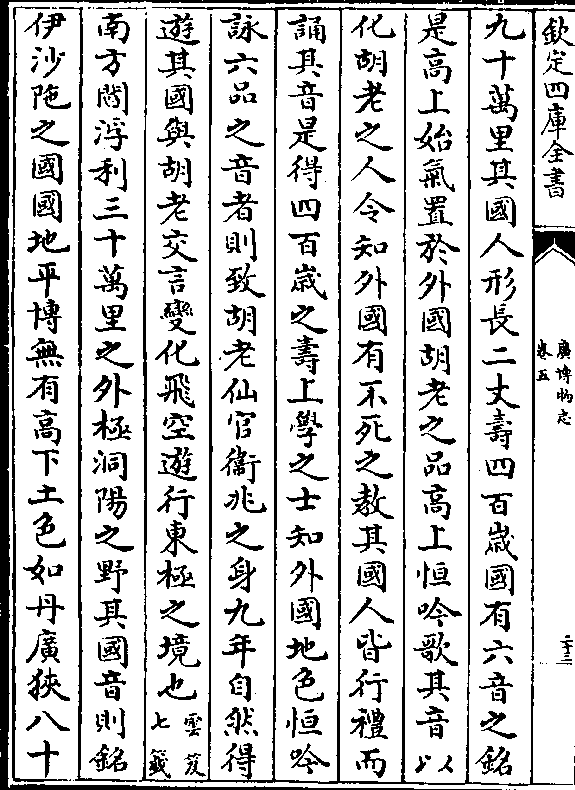 欽定四庫全書
廣博物志
卷五
二十三
九十萬里其國人形長二丈壽四百歲國有六音之銘
是高上始氣置於外國胡老之品高上恒吟歌其音以
化胡老之人令知外國有不死之教其國人皆行禮而
誦其音是得四百歲之壽上學之士知外國地色恒吟
詠六品之音者則致胡老仙官衞兆之身九年自然得
遊其國與胡老交言變化飛空遊行東極之境也雲笈七籤
南方閻浮利三十萬里之外極洞陽之野其國音則銘
伊沙陁之國國地平博無有高下土色如丹廣狹八十